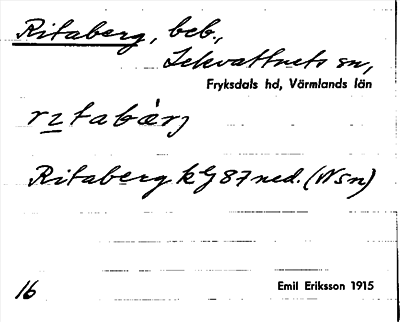 Ritaberg, beb.,
Lekvattnets sn,
Fryksdals hd, Värmlands län
rɩtabærj
Ritaberg kG 87 ned. (N sn)
16
Emil Eriksson 1915